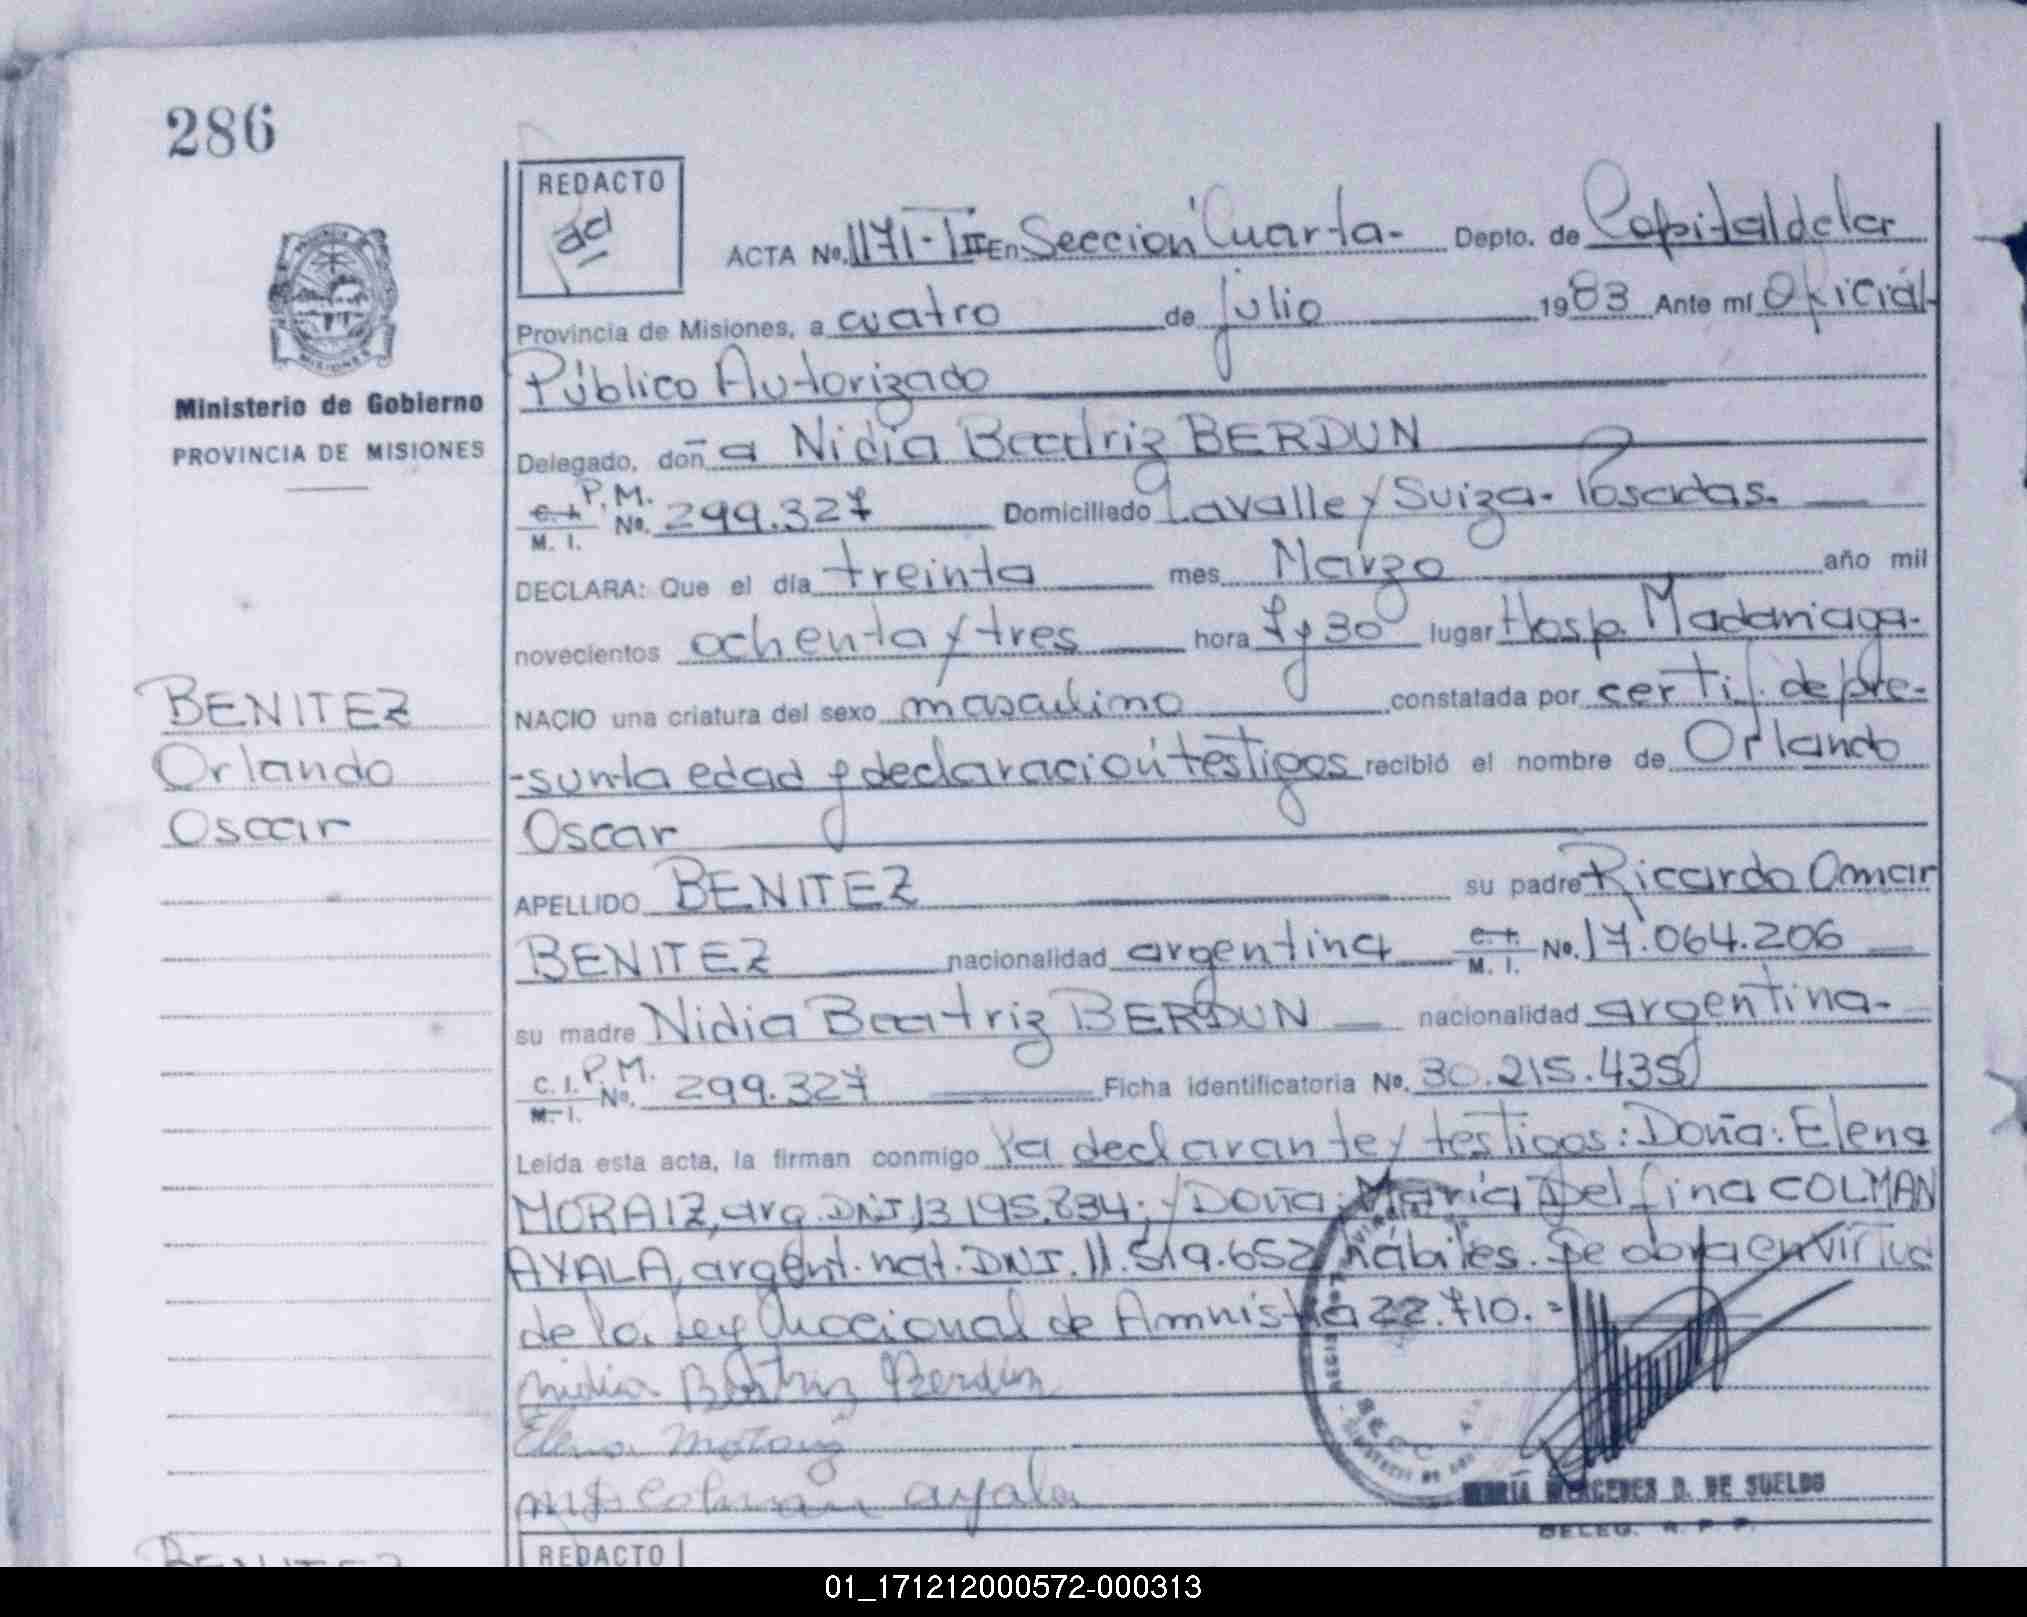 286
REDACTO
ACTA No. 1171-III En Sección Cuarta- Depto. de Capital de la
Provincia de Misiones, a cuatro de julio 1983 Ante mí Oficial
Público Autorizado
Ministerio de Gobierno
PROVINCIA DE MISIONES
Delegado, doña Nidia Beatriz BERDUN
C. I. P.M.
M. I. No. 299.327 Domiciliado Lavalle y Suiza- Posadas.
DECLARA: Que el día treinta mes Marzo año mil
novecientos ochenta y tres hora 7 y 30 lugar Hosp. Madariaga-
NACIO una criatura del sexo masculino constatada por certif. de pre-
-sunta edad y declaración testigos recibió el nombre de Orlando
Oscar
BENITEZ
Orlando
Oscar
APELLIDO BENITEZ su padre Ricardo Omar
BENITEZ nacionalidad argentina C. I. M. I. No. 17.064.206
su madre Nidia Beatriz BERDUN nacionalidad argentina-
C. I. P.M.
M. I. No. 299.327 Ficha identificatoria No. 30.215.435
Leída esta acta, la firman conmigo la declarante y testigos: Doña: Elena
MORAIZ, arg. DNI 13.195.834; y Doña: María Delfina COLMAN
AYALA, argent. nat. DNI. 11.519.652 hábiles. Se obra en virtud
de la Ley Nacional de Amnistía 22.710.=
Nidia Beatriz Berdún
Elena Moraiz
Colman ayala
MARÍA MERCEDES D. DE SUELDO
DELEG. R. P. P.
BENITEZ
REDACTO
01_171212000572-000313